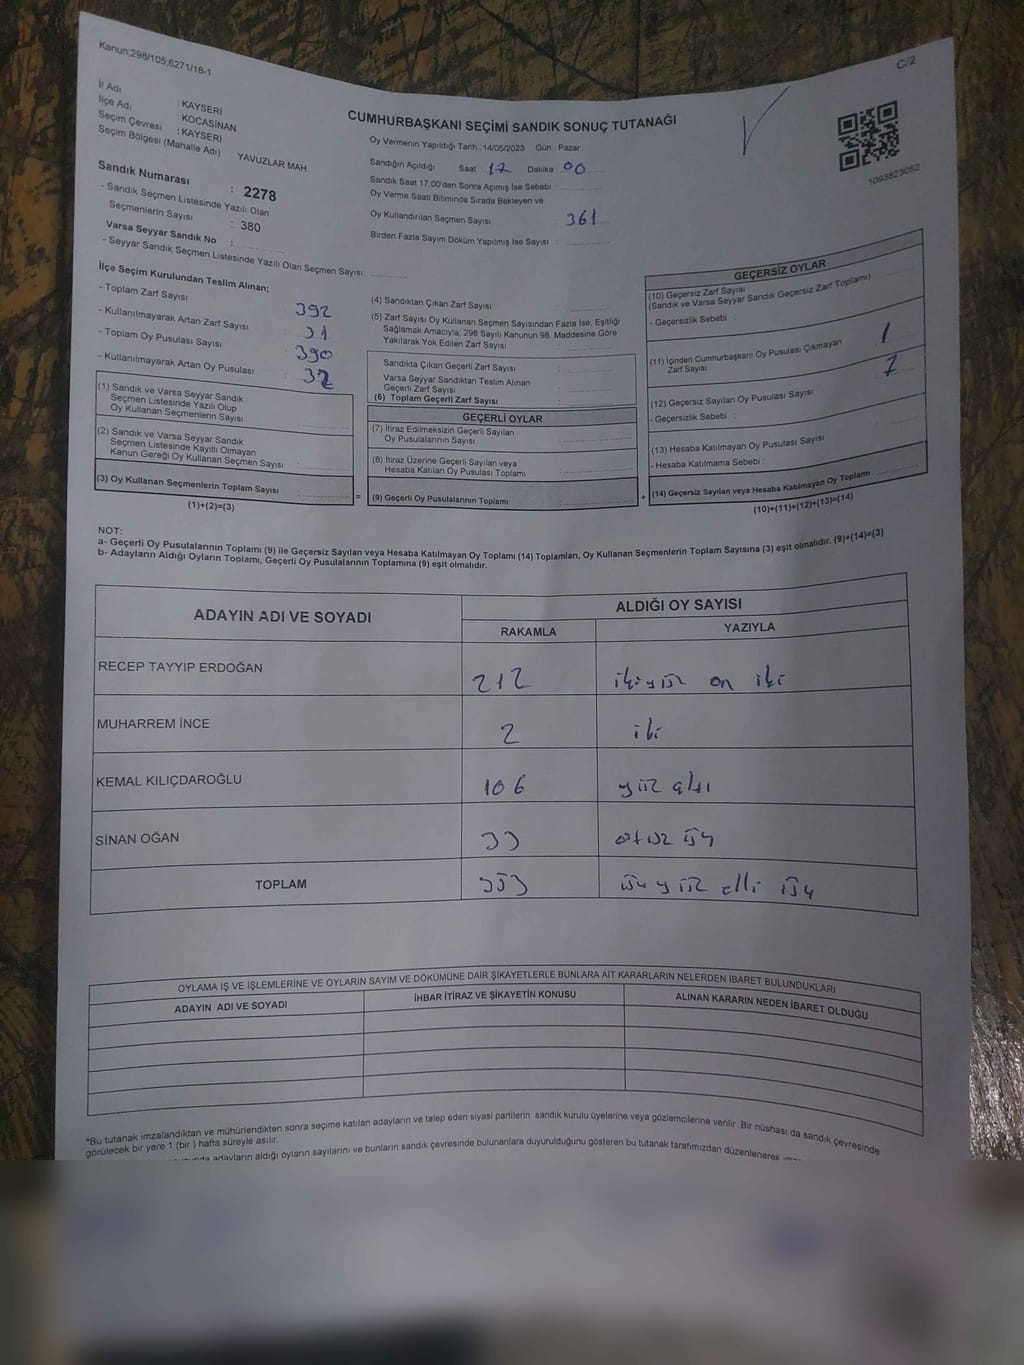 Kanun;298/105;6271/18-1
C/2
İl Adı : KAYSERİ
İlçe Adı : KOCASİNAN
Seçim Çevresi : KAYSERİ
Seçim Bölgesi (Mahalle Adı) YAVUZLAR MAH.
Sandık Numarası : 2278
- Sandık Seçmen Listesinde Yazılı Olan
Seçmenlerin Sayısı : 380
Varsa Seyyar Sandık No :
- Seyyar Sandık Seçmen Listesinde Yazılı Olan Seçmen Sayısı:
CUMHURBAŞKANI SEÇİMİ SANDIK SONUÇ TUTANAĞI
Oy Vermenin Yapıldığı Tarih :14/05/2023 Gün : Pazar
Sandığın Açıldığı Saat 17 Dakika 00
Sandık Saat 17:00'den Sonra Açımış İse Sebebi :
Oy Verme Saati Bitiminde Sırada Bekleyen ve
Oy Kullandırılan Seçmen Sayısı : 361
Birden Fazla Sayım Döküm Yapılmış İse Sayısı :
1093823052
İlçe Seçim Kurulundan Teslim Alınan;
- Toplam Zarf Sayısı : 392
- Kullanılmayarak Artan Zarf Sayısı : 31
- Toplam Oy Pusulası Sayısı : 390
- Kullanılmayarak Artan Oy Pusulası : 32
(1) Sandık ve Varsa Seyyar Sandık
Seçmen Listesinde Yazılı Olup
Oy Kullanan Seçmenlerin Sayısı :
(2) Sandık ve Varsa Seyyar Sandık
Seçmen Listesinde Kayıtlı Olmayan
Kanun Gereği Oy Kullanan Seçmen Sayısı :
(3) Oy Kullanan Seçmenlerin Toplam Sayısı :
(1)+(2)=(3)
(4) Sandıktan Çıkan Zarf Sayısı :
(5) Zarf Sayısı Oy Kullanan Seçmen Sayısından Fazla İse, Eşitliği
Sağlamak Amacıyla; 298 Sayılı Kanunun 98. Maddesine Göre
Yakılarak Yok Edilen Zarf Sayısı :
Sandıkta Çıkan Geçerli Zarf Sayısı :
Varsa Seyyar Sandıktan Teslim Alınan
Geçerli Zarf Sayısı :
(6) Toplam Geçerli Zarf Sayısı :
GEÇERLİ OYLAR
(7) İtiraz Edilmeksizin Geçerli Sayılan
Oy Pusulalarının Sayısı :
(8) İtiraz Üzerine Geçerli Sayılan veya
Hesaba Katılan Oy Pusulası Toplamı :
= (9) Geçerli Oy Pusulalarının Toplamı :
GEÇERSİZ OYLAR
(10) Geçersiz Zarf Sayısı
(Sandık ve Varsa Seyyar Sandık Geçersiz Zarf Toplamı)
- Geçersizlik Sebebi :
(11) İçinden Cumhurbaşkanı Oy Pusulası Çıkmayan
Zarf Sayısı 1
7
(12) Geçersiz Sayılan Oy Pusulası Sayısı
- Geçersizlik Sebebi :
(13) Hesaba Katılmayan Oy Pusulası Sayısı
- Hesaba Katılmama Sebebi :
+ (14) Geçersiz Sayılan veya Hesaba Katılmayan Oy Toplamı
(10)+(11)+(12)+(13)=(14)
NOT:
a- Geçerli Oy Pusulalarının Toplamı (9) ile Geçersiz Sayılan veya Hesaba Katılmayan Oy Toplamı (14) Toplamları, Oy Kullanan Seçmenlerin Toplam Sayısına (3) eşit olmalıdır. (9)+(14)=(3)
b- Adayların Aldığı Oyların Toplamı, Geçerli Oy Pusulalarının Toplamına (9) eşit olmalıdır.
ADAYIN ADI VE SOYADI ALDIĞI OY SAYISI
RAKAMLA YAZIYLA
RECEP TAYYIP ERDOĞAN 212 ikiyüz on iki
MUHARREM İNCE 2 iki
KEMAL KILIÇDAROĞLU 106 yüz altı
SİNAN OĞAN 33 otuz üç
TOPLAM 353 üç yüz elli üç
OYLAMA İŞ VE İŞLEMLERİNE VE OYLARIN SAYIM VE DÖKÜMÜNE DAİR ŞİKAYETLERLE BUNLARA AİT KARARLARIN NELERDEN İBARET BULUNDUKLARI
ADAYIN ADI VE SOYADI İHBAR İTİRAZ VE ŞİKAYETİN KONUSU ALINAN KARARIN NEDEN İBARET OLDUĞU
*Bu tutanak imzalandıktan ve mühürlendikten sonra seçime katılan adayların ve talep eden siyasi partilerin sandık kurulu üyelerine veya gözlemcilerine verilir. Bir nüshası da sandık çevresinde
görülecek bir yere 1 (bir ) hafta süreyle asılır.
adayların aldığı oyların sayılarını ve bunların sandık çevresinde bulunanlara duyurulduğunu gösteren bu tutanak tarafımızdan düzenlenerek